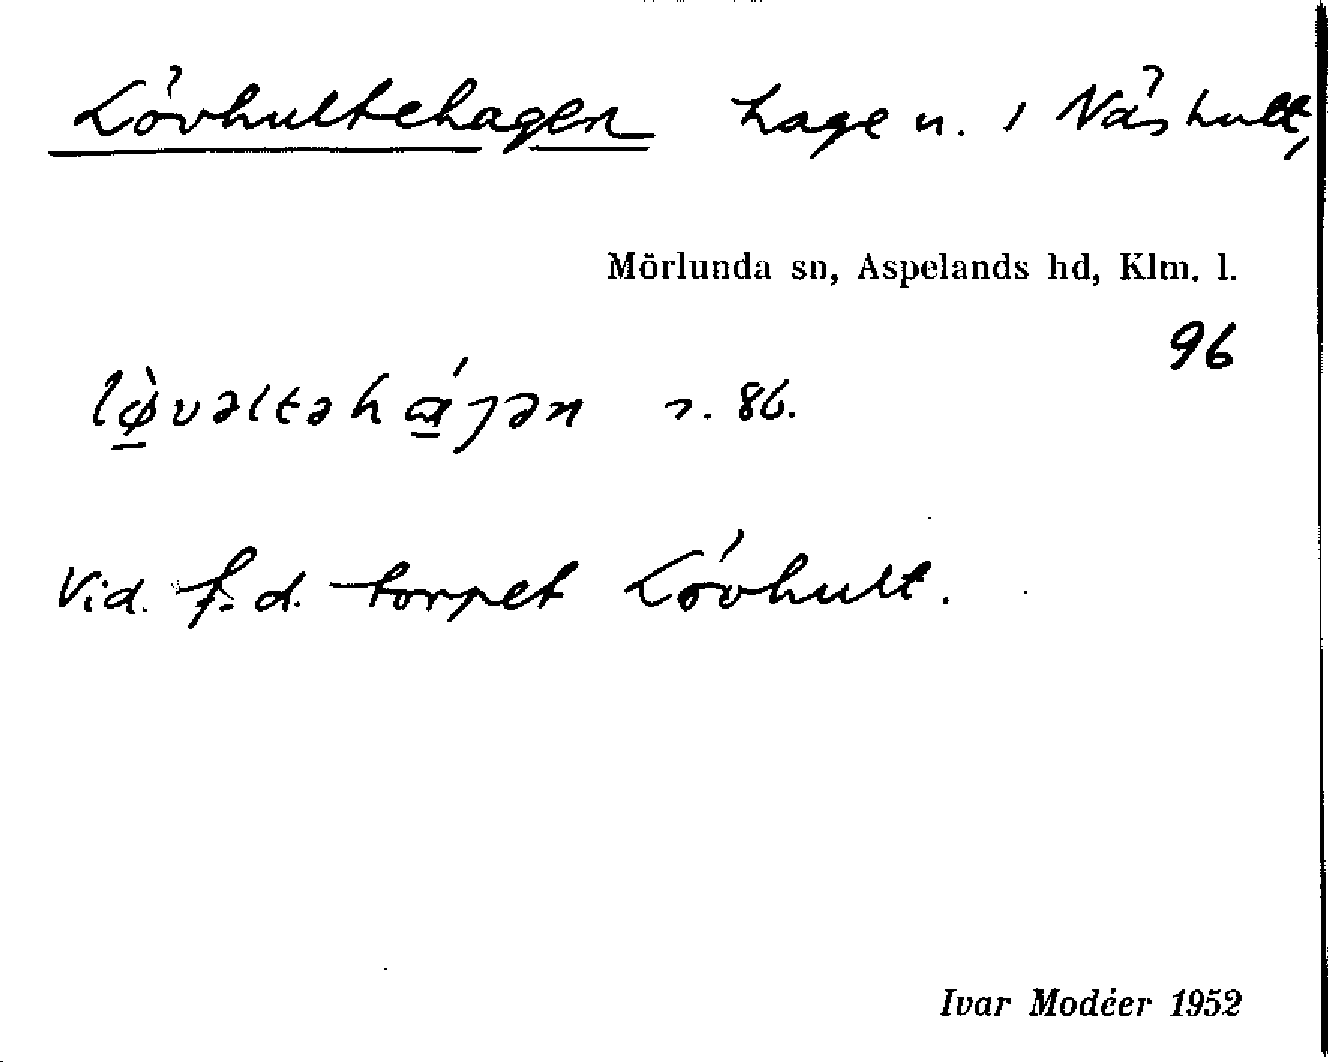 Lövhultehagen hage n. i Näshult,
Mörlunda sn, Aspelands hd, Klm. l.
96
lø̀vəltəhɑ́gən s. 86.
Vid f. d. torpet Lövhult.
Ivar Modéer 1952